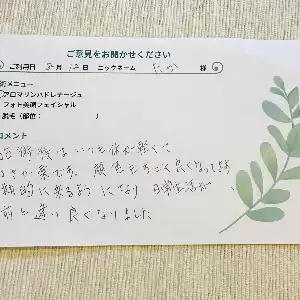 ご意見をお聞かせください
ご利用日 8月 12日 ニックネーム たか 様
術メニュー
アロマリンパドレナージュ
フォト美顔フェイシャル
脱毛(部位: )
コメント
施術後はいつも体が軽くて
楽です。顔色もすごく良くなってます
定期的に来るようになり 日常生活が
前と違い良くなりました